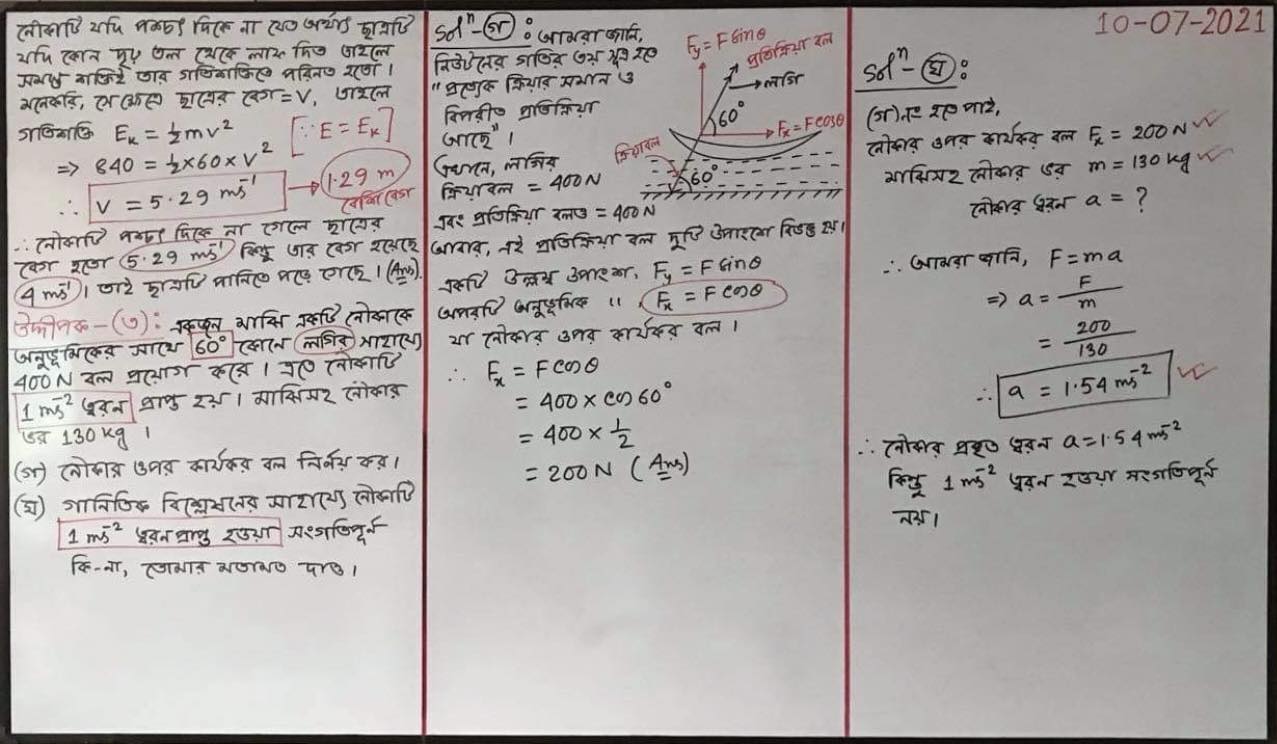 নৌকাটি যদি পশ্চাৎ দিকে না যেত অর্থাৎ ছাত্রটি
যদি কোন দৃঢ় তল থেকে লাফ দিত তাহলে
সমস্ত শক্তিই তার গতিশক্তিতে পরিনত হতো।
মনেকরি, সেক্ষেত্রে ছাত্রের বেগ = V, তাহলে
গতিশক্তি Eₖ = ½mv² [∵ E = Eₖ]
⇒ 840 = ½×60×V²
∴ V = 5.29 ms⁻¹ → 1.29 m
বেশি বেগ
∴ নৌকাটি পশ্চাৎ দিকে না গেলে ছাত্রের
বেগ হতো 5.29 ms⁻¹ কিন্তু তার বেগ হয়েছে
4 ms⁻¹। তাই ছাত্রটি পানিতে পড়ে গেছে। (Ans).
উদ্দীপক-(৩): একজন মাঝি একটি নৌকাকে
অনুভূমিকের সাথে 60° কোনে লগির সাহায্যে
400N বল প্রয়োগ করে। এতে নৌকাটি
1 ms⁻² ত্বরন প্রাপ্ত হয়। মাঝিসহ নৌকার
ভর 130 kg ।
(গ) নৌকার ওপর কার্যকর বল নির্নয় কর।
(ঘ) গানিতিক বিশ্লেষনের সাহায্যে নৌকাটি
1 ms⁻² ত্বরন প্রাপ্ত হওয়া সংগতিপূর্ন
কি-না, তোমার মতামত দাও।
Solⁿ-(গ): আমরা জানি,
নিউটনের গতির ৩য় সূত্র হতে
"প্রত্যেক ক্রিয়ার সমান ও
বিপরীত প্রতিক্রিয়া
আছে"।
এখানে, লগির
ক্রিয়াবল = 400N
এবং প্রতিক্রিয়া বলও = 400N
আবার, এই প্রতিক্রিয়া বল দুটি উপাংশে বিভক্ত হয়।
একটি উল্লম্ব উপাংশ, Fᵧ = F Sinθ
অপরটি অনুভূমিক ", Fₓ = F cosθ
যা নৌকার ওপর কার্যকর বল।
∴ Fₓ = F cosθ
= 400 × cos 60°
= 400 × ½
= 200N (Ans)
Fᵧ = F Sinθ
প্রতিক্রিয়া বল
লগি
60°
Fₓ = F cosθ
ক্রিয়াবল
60°
10-07-2021
Solⁿ-(ঘ):
(গ) নং হতে পাই,
নৌকার ওপর কার্যকর বল Fₓ = 200N
মাঝিসহ নৌকার ভর m = 130 kg
নৌকার ত্বরন a = ?
∴ আমরা জানি, F = ma
⇒ a = F/m
= 200/130
∴ a = 1.54 ms⁻²
∴ নৌকার প্রকৃত ত্বরন a = 1.54 ms⁻²
কিন্তু 1 ms⁻² ত্বরন হওয়া সংগতিপূর্ন
নয়।